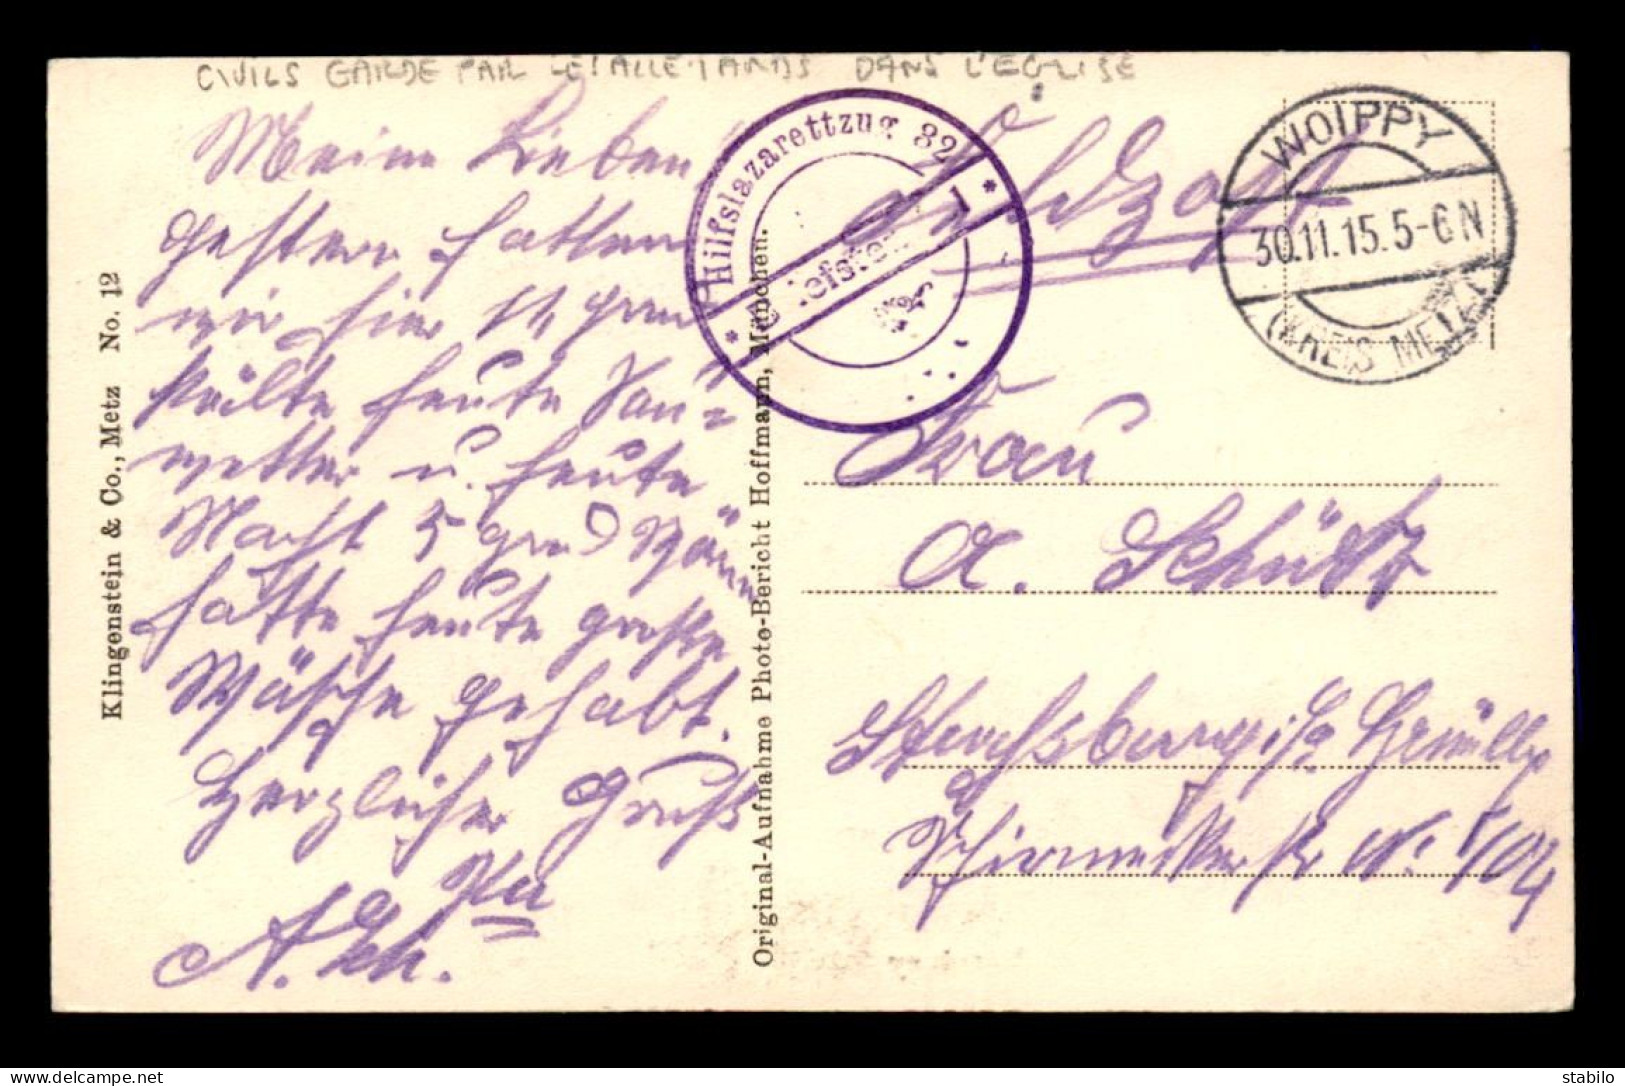 CIVILS GARDE PAR LES ALLEMANDS DANS L'EGLISE
Meine Lieben
gestern hatten
wir hier 11 grad
Kälte heute Thau=
wetter u. heute
Nacht 5 grad Wärme
hatte heute große
Wäsche gehabt.
Herzlicher Gruß
A. Sch.
Klingenstein & Co., Metz No. 12
Original-Aufnahme Photo-Bericht Hoffmann, München.
* Hilfslazarettzug 32 *
Briefstempel
Feldpost
WOIPPY
30.11.15.5-6N
(KREIS METZ)
Frau
A. Schütz
Strassburg i/e
Schirmecker str No 104
delcampe.net
stabilo